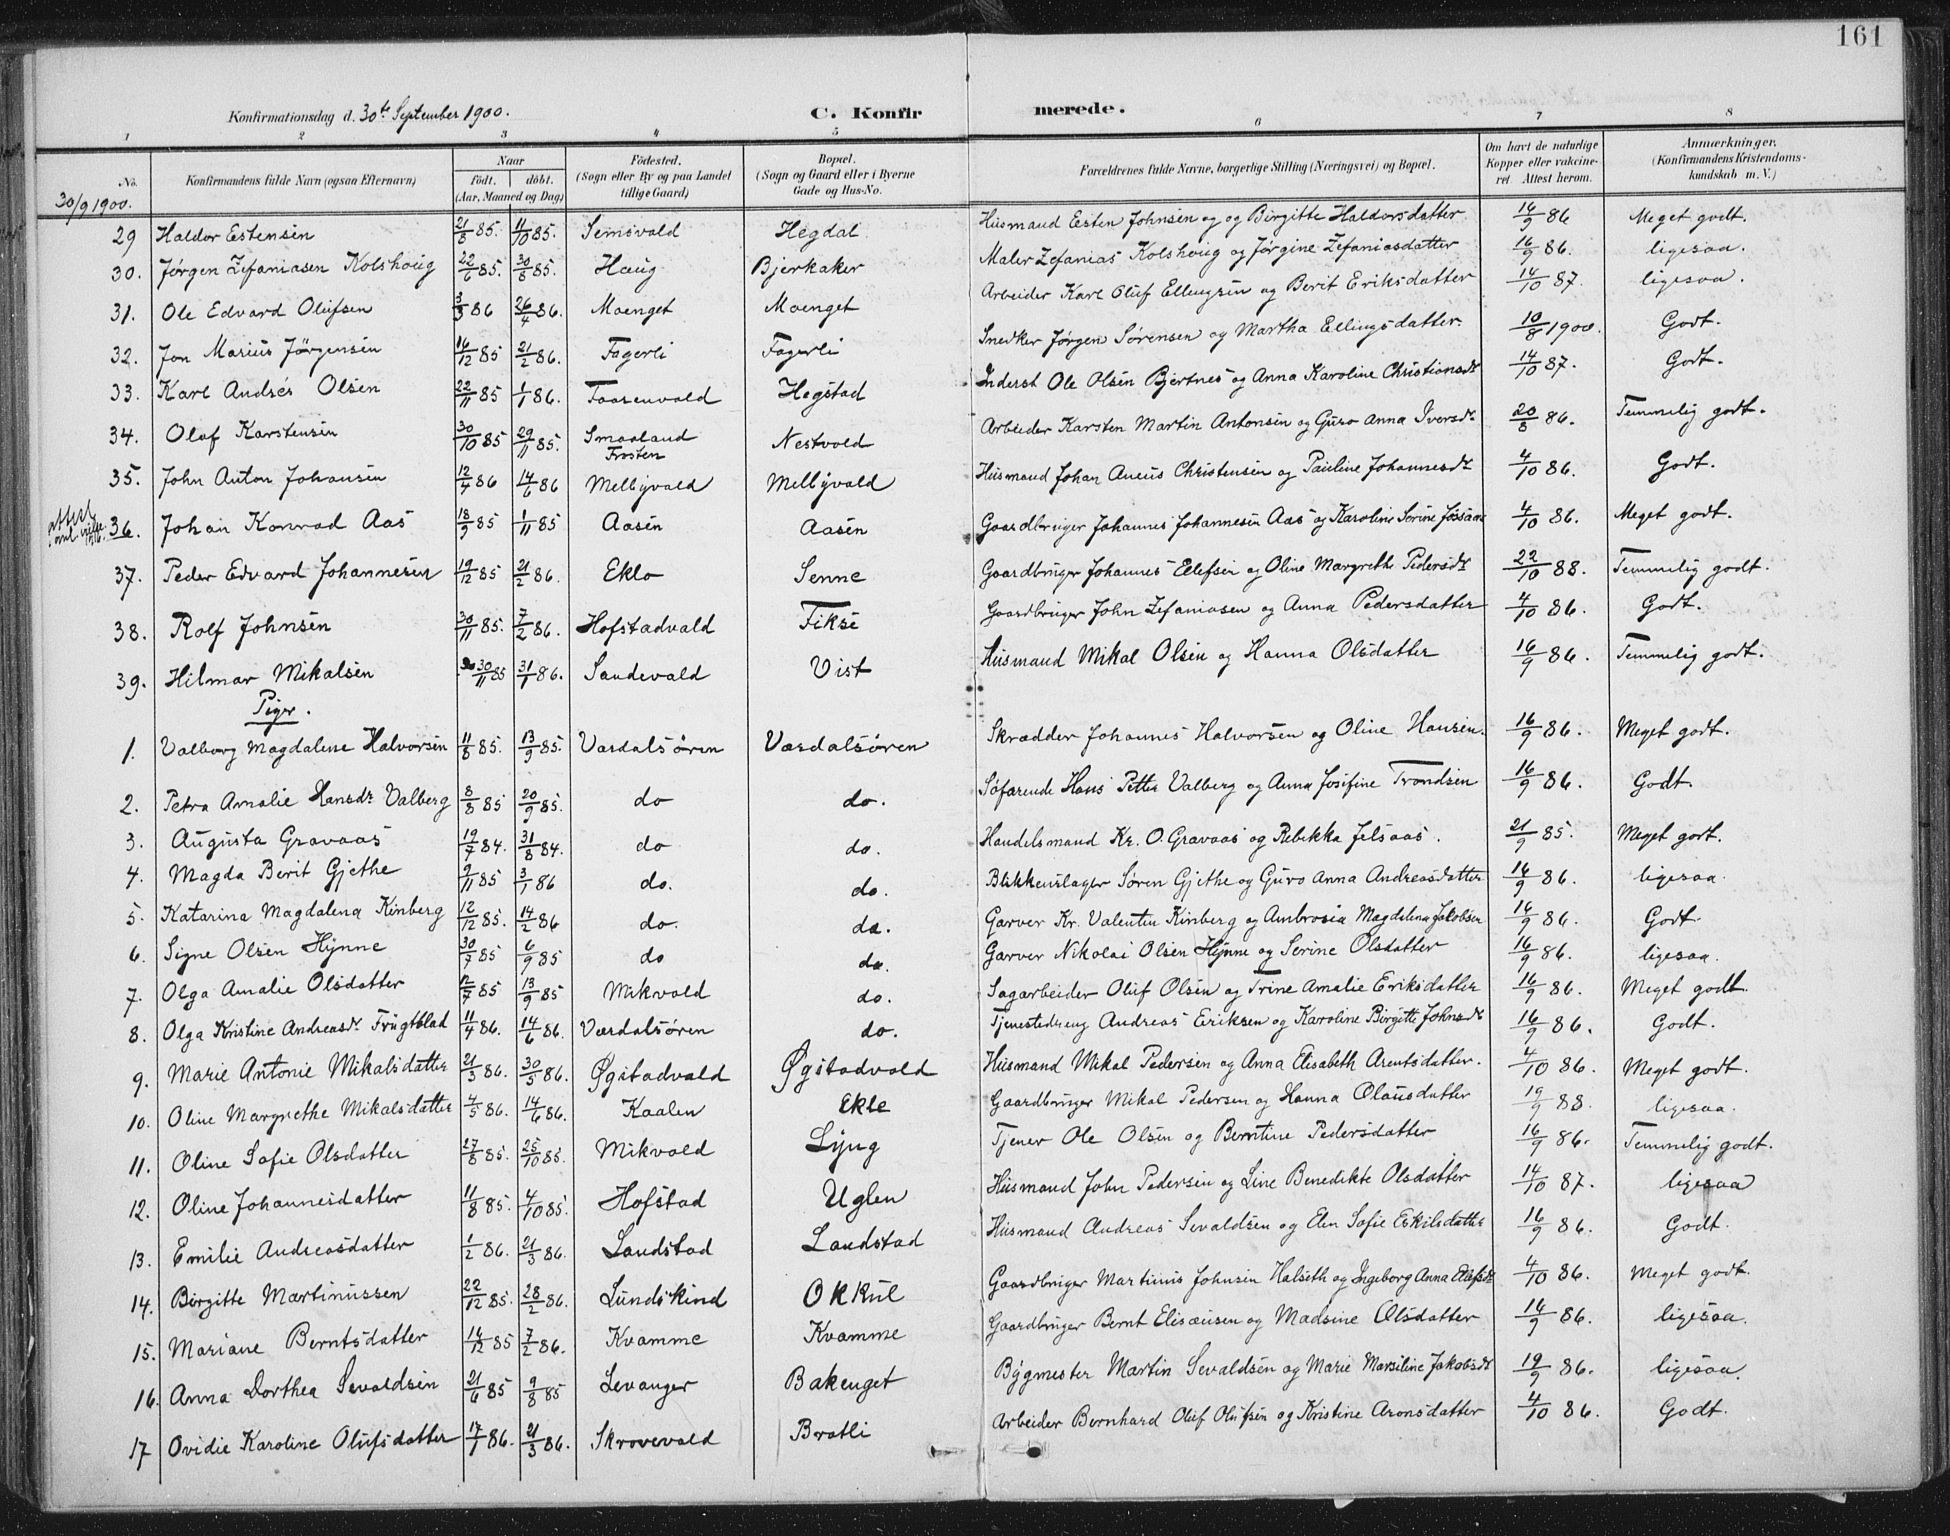 161
Konfirmationsdag d. 30te September 1900. C. Konfirmerede.
1 2 3 4 5 6 7 8
No. Konfirmandens fulde Navn (ogsaa Efternavn) Naar født. døbt. (Aar, Maaned og Dag) Fødested. (Sogn eller By og paa Landet tillige Gaard) Bopæl. (Sogn og Gaard eller i Byerne Gade og Hus-No. Forældrenes fulde Navne, borgerlige Stilling (Næringsvei) og Bopæl. Om havt de naturlige Kopper eller vaccineret. Attest herom. Anmærkninger. (Konfirmandens Kristendomskundskab m. V.)
30/9 1900.
29 Haldor Estensen 21/8 85. 11/10 85. Semsvald Hegdal Husmand Esten Johnsen og og Birgitte Haldorsdatter 16/9 86 Meget godt.
30. Jørgen Zefaniasen Kolshoug 22/6 85. 30/8 85. Haug Bjerkaker Maler Zefanias Kolshoug og Jørgine Zefaniasdatter 16/9 86. ligesaa.
31. Ole Edvard Olufsen 3/3 86 26/4 86. Moenget Moenget Arbeider Karl Oluf Ellingsen og Berit Eriksdatter 14/10 87. ligesaa.
32. Jon Marius Jørgensen 16/12 85 21/2 86. Fagerli Fagerli Snedker Jørgen Sørensen og Martha Ellingsdatter. 10/8 1900. Godt.
33. Karl Andres Olsen 22/11 85 1/1 86. Faarenvald Hegstad Inderst Ole Olsen Bjertnes og Anna Karoline Christiansdt 14/10 87. Godt.
34. Olaf Karstensen 30/10 85 29/11 85. Smaaland Frosten Nestvold Arbeider Karsten Martin Antonsen og Guro Anna Iversdt 20/8 86. Temmelig godt.
35. John Anton Johansen 12/4 86 14/6 86 Melbyvald Melbyvald Husmand Johan Aneus Christensen og Pauline Johannesdt 4/10 86. Godt.
36. Johan Konrad Aas 18/9 85 1/11 85 Aasen Aasen Gaardbruger Johannes Johannesen Aas og Karoline Serine 4/10 86. Meget godt.
37. Peder Edvard Johannesen 19/12 85 21/2 86. Eklo Senne Gaardbruger Johannes Ellefsen og Oline Margrethe Pedersdt 22/10 88. Temmelig godt.
38. Rolf Johnsen 30/11 85. 7/2 86. Hofstadvald Fikse Gaardbruger John Zefaniasen og Anna Pedersdatter 4/10 86. Godt.
39. Hilmar Mikalsen 30/11 85 31/1 86. Sandevald Vist Husmand Mikal Olsen og Hanna Olsdatter 16/9 86. Temmelig godt.
Piger.
1. Valborg Magdalene Halvorsen 11/8 85. 13/9 85. Værdalsøren Værdalsøren Skrædder Johannes Halvorsen og Oline Hansen. 16/9 86. Meget godt.
2. Petra Amalie Hansdt Valberg 8/8 85 20/9 85. do do. Søfarende Hans Petter Valberg og Anna Josifine Trondsen 16/9 86. Godt.
3. Augusta Gravaas 19/7 84. 31/8 84. do do. Handelsmand Kr. O. Gravaas og Rebekka Jelsaas. 21/9 85. Meget godt.
4. Magda Berit Gjethe 9/11 85 3/1 86 do. do. Blikkenslager Søren Gjethe og Guro Anna Andreasdatter 16/9 86. ligesaa.
5. Katarina Magdalena Kinberg 12/12 85. 14/2 86 do. do. Garver Kr. Valentin Kinberg og Ambrosia Magdalena Jakobsen 16/9 86. Godt.
6. Signe Olsen Hynne 30/7 85 6/9 85 do do. Garver Nikolai Olsen Hynne og Serine Olsdatter 16/9 86. ligesaa.
7. Olga Amalie Olsdatter 12/7 85 13/9 85 Mikvold do. Sagarbeider Oluf Olsen og Trine Amalie Eriksdatter 16/9 86. Meget godt.
8. Olga Kristine Andreasdt Frugtblad 11/4 86. 14/6 86. Værdalsøren do. Tjenestedreng Andreas Eriksen og Karoline Birgitte Johnsdt 16/9 86. Godt.
9. Marie Antonie Mikalsdatter 21/3 86. 30/5 86. Øgstadvald Øgstadvald Husmand Mikal Pedersen og Anna Elisabeth Arentsdatter. 4/10 86. Meget godt.
10. Oline Margrethe Mikalsdatter 4/5 86. 14/6 86. Kaalen Ekle Gaardbruger Mikal Pedersen og Hanna Olausdatter 19/9 88. ligesaa.
11. Oline Sofie Olsdatter 27/8 85. 25/10 85. Mikvold Lyng Tjener Ole Olsen og Berntine Pedersdatter 16/9 86. Temmelig godt.
12. Oline Johannesdatter 11/8 85. 4/10 85. Hofstad Uglen Husmand John Pedersen og Line Benedikte Olsdatter 14/10 87. ligesaa
13. Emilie Andreasdatter 1/2 86. 21/3 86. Landstad Landstad Husmand Andreas Sevaldsen og Elen Sofie Eskilsdatter 16/9 86. Godt.
14. Birgitte Martinussen 22/12 85. 28/2 86. Lundskind Okkul Gaardbruger Martinus Johnsen Halseth og Ingeborg Anna 4/10 86. Meget godt.
15. Mariane Berntsdatter 14/12 85 7/2 86. Kvamme Kvamme Gaardbruger Bernt Elisæusen og Madsine Olsdatter 16/9 86. ligesaa.
16. Anna Dorthea Sevaldsen 21/6 85 9/8 85 Levanger Bakenget Bygmester Martin Sevaldsen og Marie Marsiline Jakobsdt 19/9 86. ligesaa.
17 Ovidie Karoline Olufsdatter 17/1 86. 21/3 86. Skrovevald Bratli Arbeider Bernhard Oluf Olufsen og Kristine Aronsdatter 4/10 86. Godt.